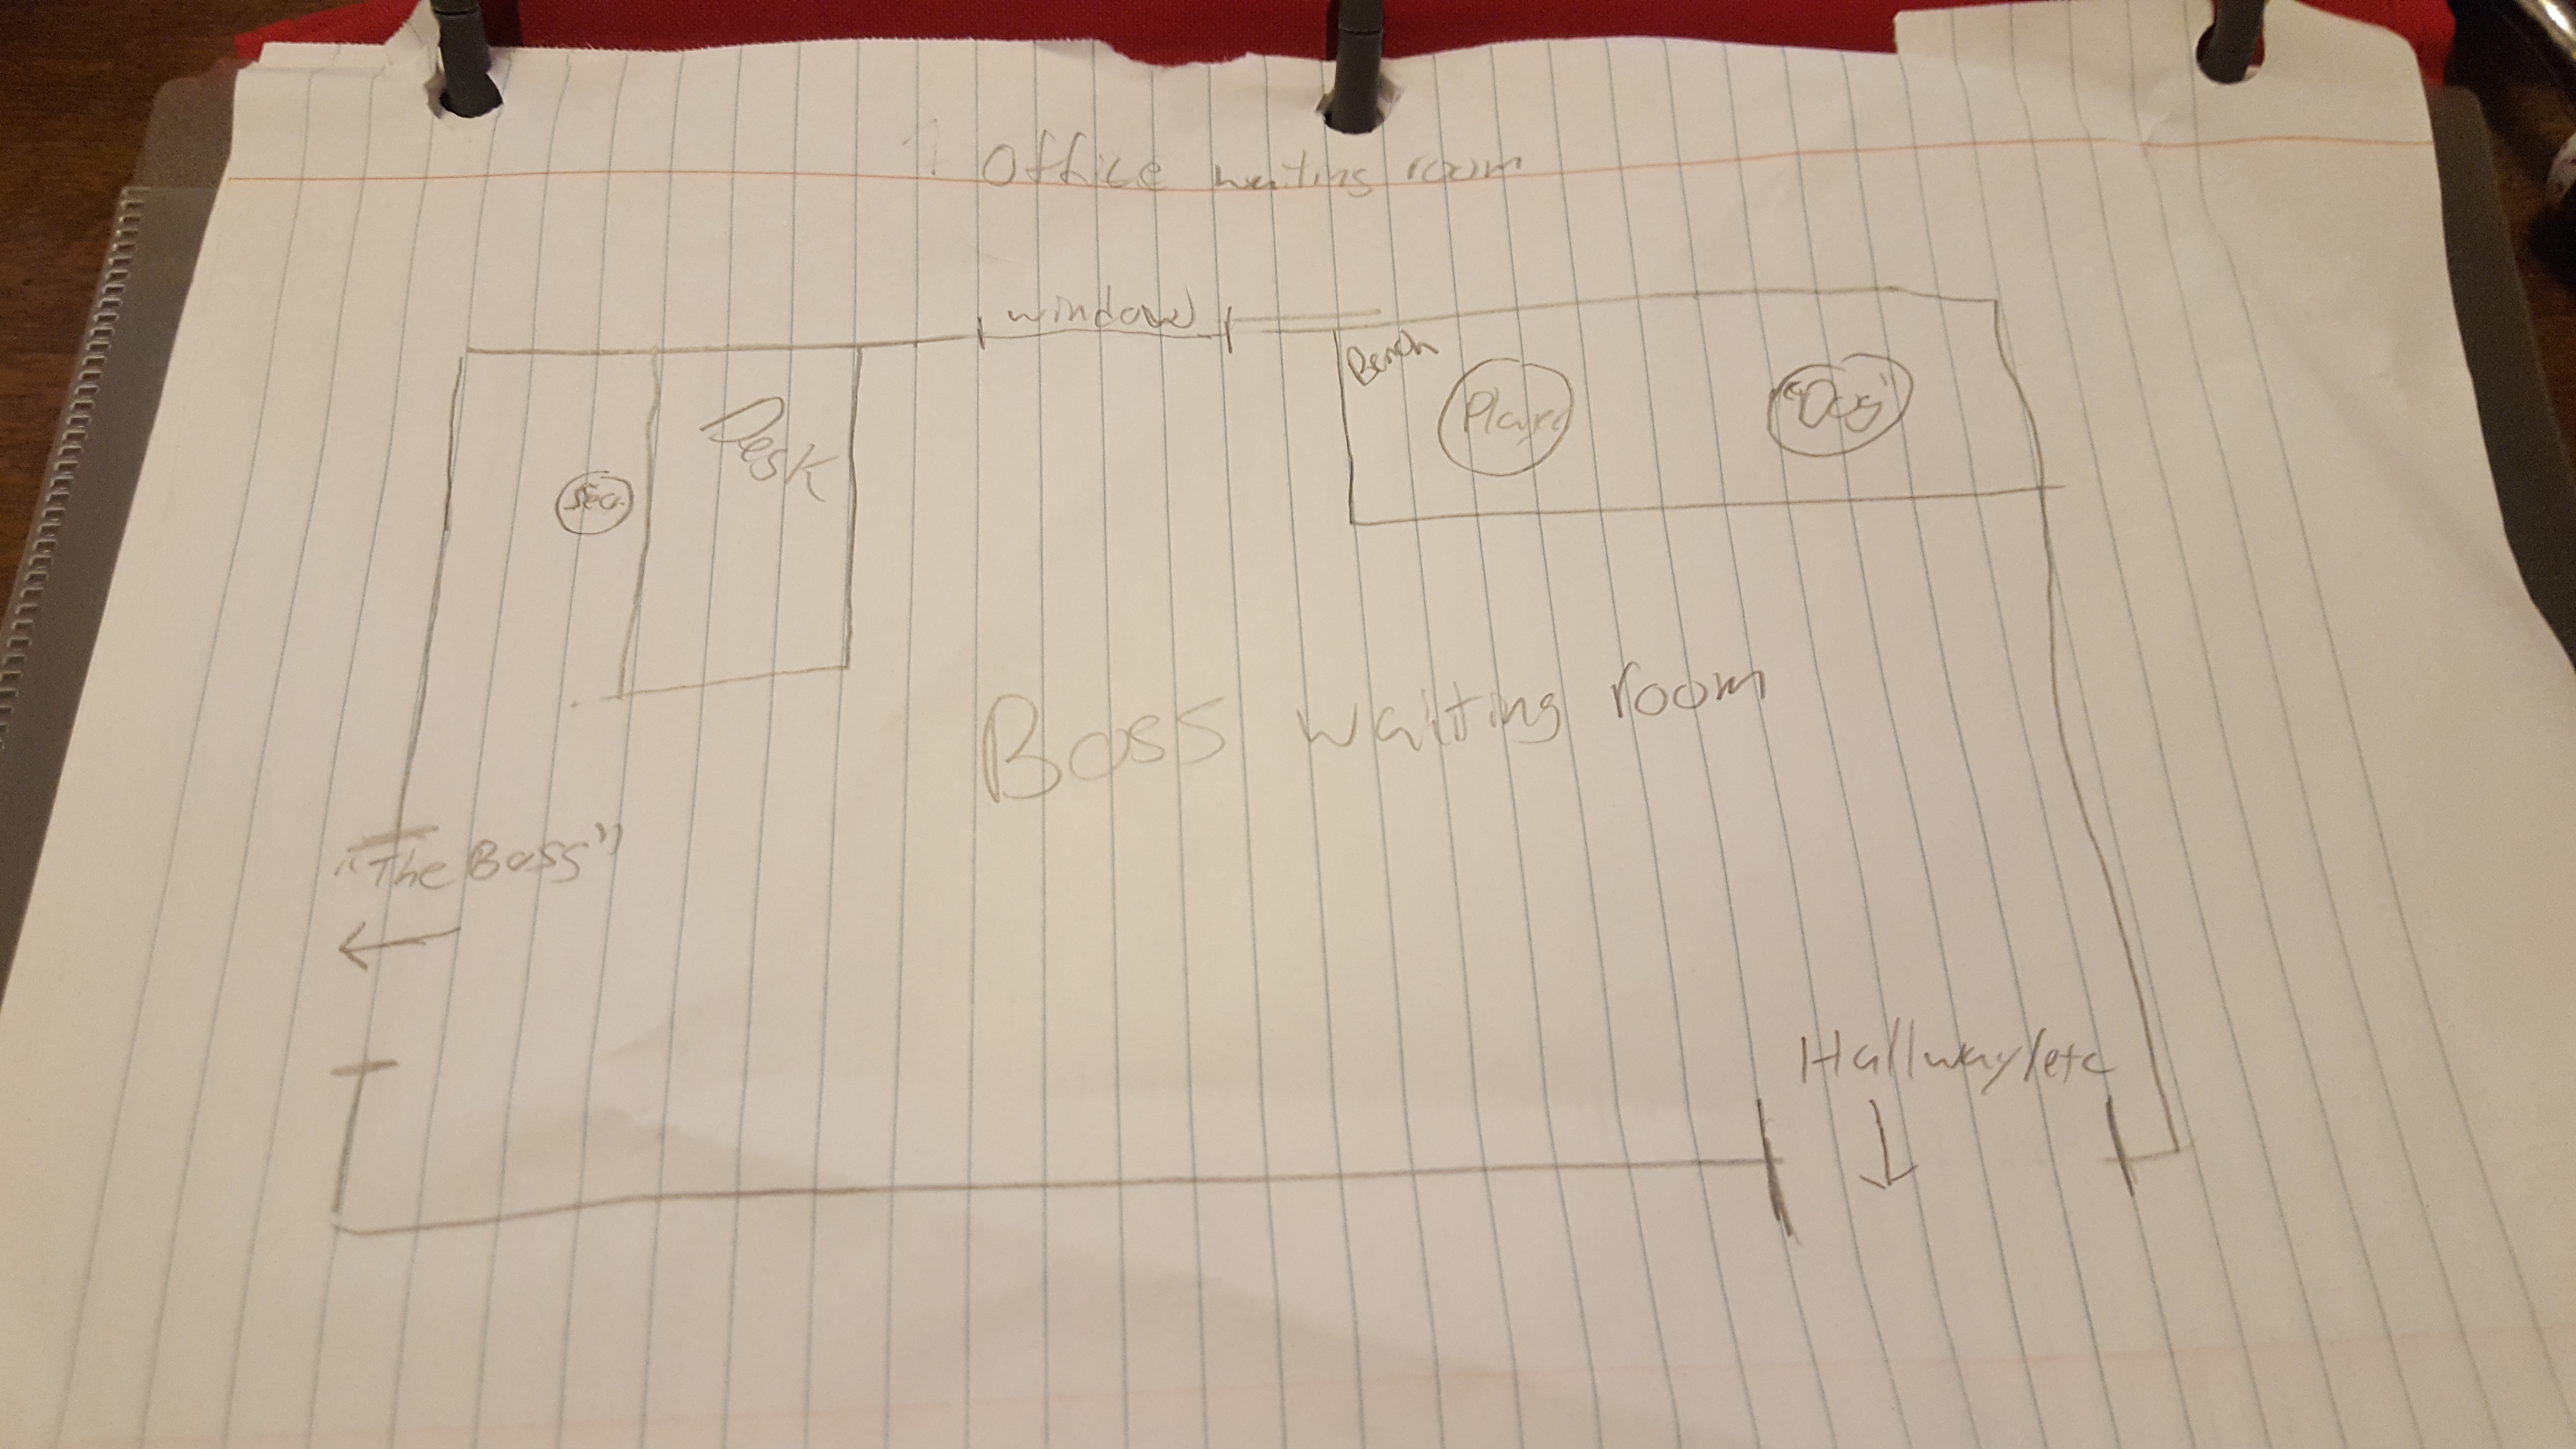 1. Office waiting room
window
Bench
Player
"Dog"
Desk
Sec.
Boss waiting room
"The Boss"
Hallway/etc